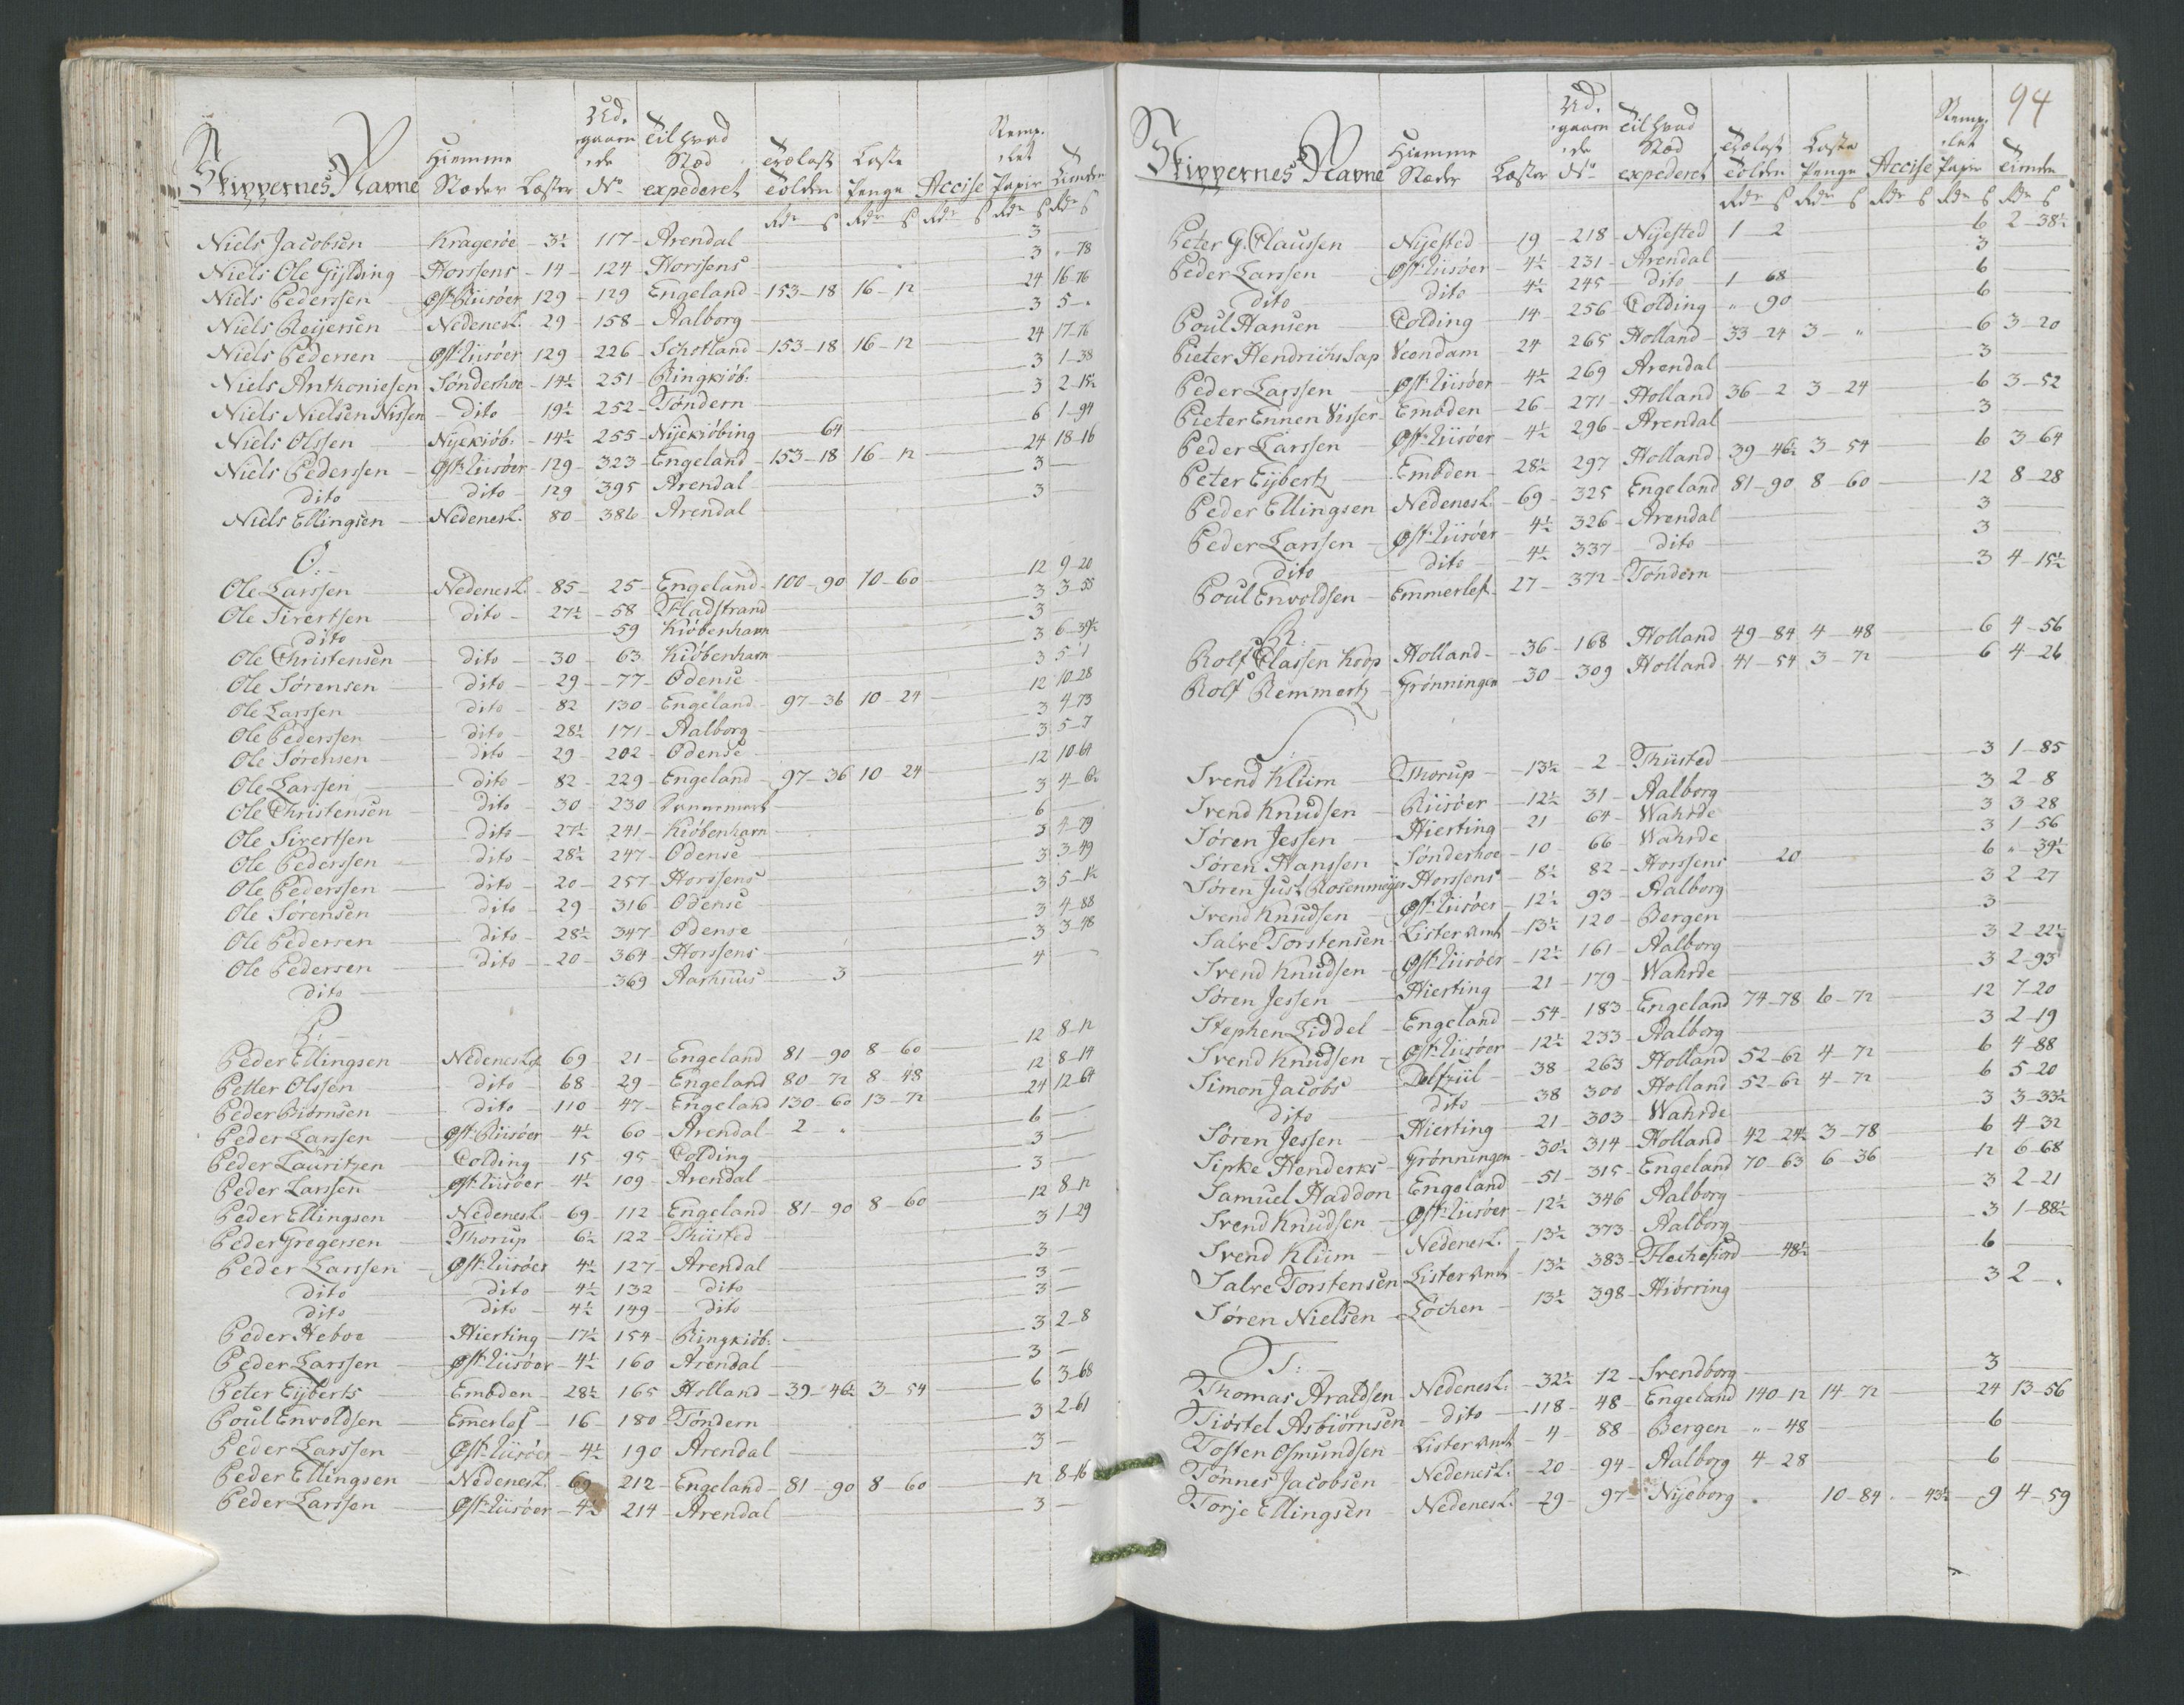 Skippernes Navne Hiemme Stæder Læster Ud, gaaende No Til hvad Stæd expederet Trælast Tolden Læste Penge Accise Stemp, let Papir
Rdr ß Rdr ß Rdr ß Rdr ß Rdr ß
Niels Jacobsen - Kragerøe - 3½ 117 - Arendal 3
Niels Ole Gylding - Horssens - 14 - 124 - Horssens 3 " - 78
Niels Pederssen - Øst Riisøer 129 - 129 Engeland - 153 - 18 16 - 12 24 16 - 76
Niels Reijersen - Nedenesl. 29 - 158 - Aalborg 3 5 - "
Niels Pedersen - Øst Riisøer 129 - 226 - Schotland - 153 - 18 16 - 12 24 17 - 76
Niels Anthoniesen Sønderhoe - 14½ 251 - Ringkiøb: 3 1 - 38
Niels Nielsen Nissen - dito - 19½ 252 - Tøndern 3 2 - 15½
Niels Olssen - Nyekiøb: - 14½ 255 - Nyekiøbing 64 6 1 - 94
Niels Pederssen - Øst Riisøer - 129 - 323 - Engeland - 153 - 18 16 - 12 24 18 - 16
dito - dito - 129 395 - Arendal 3
Niels Ellingsen - Nedenesl. 80 - 386 Arendal 3
O:
Ole Larssen - Nedenesl. - 85 - 25 - Engeland - 100 - 90 10 - 60 12 9 - 20
Ole Sivertsen - dito - 27½ - 58 - Fladstrand 3 3 - 55
dito 59 Kiøbenhavn 3
Ole Christensen - dito - 30 - 63 Kiøbenhavn 3 6 - 39½
Ole Sørensen - dito - 29 - 77 - Odense 3 5 - 1
Ole Larssen - dito - 82 130 - Engeland - 97 - 36 10 - 24 12 10 - 28
Ole Pederssen - dito - 28½ 171 - Aalborg 3 4 - 73
Ole Sørensen - dito - 29 - 202 - Odense 3 5 - 7
Ole Larssen - dito - 82 - 229 - Engeland - 97 - 36 10 - 24 12 10 - 64
Ole Christensen - dito - 30 - 230 Dannemark 3 4 - 6½
Ole Sivertsen - dito - 27½ - 241 - Kiøbenhavn 6
Ole Pederssen - dito - 28½ - 247 - Odense 3 4 - 79
Ole Pederssen - dito - 20 - 257 - Horssens 3 3 - 49
Ole Sørensen - dito - 29 - 316 - Odense 3 5 - 1½
Ole Pedersen - dito - 28½ - 347 - Odense 3 4 - 88
Ole Pedersen - dito - 20 - 364 - Horssens 3 3 - 48
dito 369 Aarhuus 3 4
P:
Peder Ellingsen - Nedenesl. 69 - 21 - Engeland 81 - 90 8 - 60 12 8 - 12
Petter Olssen - dito - 68 - 29 - Engeland 80 - 72 8 - 48 12 8 - 14
Peder Biørnsen - dito - 110 - 47 - Engeland 130 - 60 13 - 72 24 12 - 64
Peder Larssen - Øst Riisøer - 4½ 60 - Arendal - 2 - " 6
Peder Lauritzen - Colding - 15 95 - Colding 3
Peder Larssen - Øst Riisøer - 4½ 109 - Arendal 3
Peder Ellingsen - Nedenesl. - 69 - 112 - Engeland - 81 - 90 8 - 60 12 8 - 12
Peder Gregersen - Thorup - 6½ 122 - Thiisted 3 1 - 29
Peder Larssen - Øst Riisøer 4½ 127 - Arendal 3
dito - dito - 4½ 132 - dito 3
dito - dito - 4½ 149 - dito 3
Peder Heboe - Hierting - 17½ 154 - Ringkiøb: 3 2 - 8
Peder Larssen - Øst Riisøer - 4½ 160 Arendal 3
Peter Eyberts - Embden - 28½ 165 - Holland - 39 - 46½ 3 - 54 6 3 - 68
Poul Envoldsen - Emerlef - 16 - 180 - Tøndern 3 2 - 61
Peder Larssen - Øst Riisøer - 4½ 190 Arendal 3
Peder Ellingsen - Nedenesl. - 69 212 - Engeland - 81 - 90 8 - 60 12 8 - 16
Peder Larssen - Øst Riisøer - 4½ 214 - Arendal 3
94
Skippernes Navne Hiemme Stæder Læster Ud, gaaende No Til hvad Stæd expederet Trælast Tolden Læste Penge Accise Stemp, let Papir
Rdr ß Rdr ß Rdr ß Rdr ß Rdr ß
Peter G. Claussen - Nijested - 19 - 218 - Nijested 1 - 2 6 2 - 38½
Peder Larssen - Øst Riisøer - 4½ - 231 - Arendal 3
dito - dito 4½ 245 - dito - 1 - 68 6
Poul Hansen - Colding - 14 256 - Colding - " 90 6
Pieter Hendrichs Sap Veendam - 24 265 Holland - 33 - 24 3 - " 6 3 - 20
Peder Larssen - Øst Riisøer - 4½ 269 Arendal 3
Pieter Ennen Visser - Embden - 26 - 271 - Holland 36 - 2 3 - 24 6 3 - 52
Peder Larssen - Øst Riisøer - 4½ 296 - Arendal 3
Peter Eybertz - Embden - 28½ 297 Holland 39 - 46½ 3 - 54 6 3 - 64
Peder Ellingsen Nedenesl. - 69 - 325 Engeland 81 - 90 8 - 60 12 8 - 28
Peder Larssen - Øst Riisøer - 4½ 326 - Arendal 3
dito - dito - 4½ 337 - dito 3
Poul Envoldsen - Emmerlef - 27 - 372 - Tøndern 3 4 - 15½
R:
Rolf Classen Koop - Holland - 36 - 168 Holland 49 - 84 4 - 48 6 4 - 56
Rolf Remmertz - Grønningen - 30 - 309 Holland 41 - 54 3 - 72 6 4 - 26
S
Svend Klüm - Thorup - 13½ - 2 - Thiisted 3 1 - 85
Svend Knudsen - Riisøer - 12½ 31 - Aalborg 3 2 - 8
Søren Jessen - Hierting - 21 - 64 - Wahrde 3 3 - 28
Søren Hanssen - Sønderhoe - 10 - 66 Wahrde 3 1 - 56
Søren Just Rosenmeyer Horssens - 8½ 82 - Horssens 20 6 " - 39½
Svend Knudsen - Øst Riisøer - 12½ 93 - Aalborg 3 2 - 27
Salve Torstensen Lister Amt - 13½ 120 - Bergen 3
Svend Knudsen - Øst Riisøer - 12½ 161 - Aalborg 3 2 - 22½
Søren Jessen - Hierting - 21 - 179 - Wahrde 3 2 - 93
Stephen Liddel - Engeland - 54 - 183 - Engeland 74 - 78 6 - 72 12 7 - 20
Svend Knudsen - Øst Riisøer - 12½ 233 - Aalborg 3 2 - 19
Simon Jacobs - Delfziil - 38 - 263 Holland 52 - 62 4 - 72 6 4 - 88
dito - dito - 38 300 - Holland 52 - 62 4 - 72 6 5 - 20
Søren Jessen - Hierting - 21 - 303 - Wahrde 3 3 - 33½
Sipke Henderks - Grønningen - 30½ 314 - Holland - 42 - 24½ 3 - 78 6 4 - 32
Samuel Haddon - Engeland - 51 - 315 - Engeland 70 - 63 6 - 36 12 6 - 68
Svend Knudsen - Øst Riisøer - 12½ 346 Aalborg 3 2 - 21
Svend Klüm - Nedenesl. - 13½ 373 - Aalborg 3 1 - 88½
Salve Torstensen Lister Amt - 13½ 383 - Flechefiord - 48½ 6
Søren Nielsen - Løchen - 13½ 398 - Hiørring 3 2 - "
T:
Thomas Araldsen - Nedenesl. - 32½ 12 - Svendborg 3
Tiøstel Asbiørnsen - dito - 118 - 48 - Engeland 140 - 12 14 - 72 24 13 - 56
Tosten Osmundsen - Lister Amt - 4 - 88 - Bergen - " - 48 6
Tønnes Jacobsen - Nedenesl. - 20 - 94 - Aalborg 4 - 28 6
Torje Ellingsen - Nedenesl. - 29 - 97 - Nijeborg 10 - 84 43½ 9 4 - 59